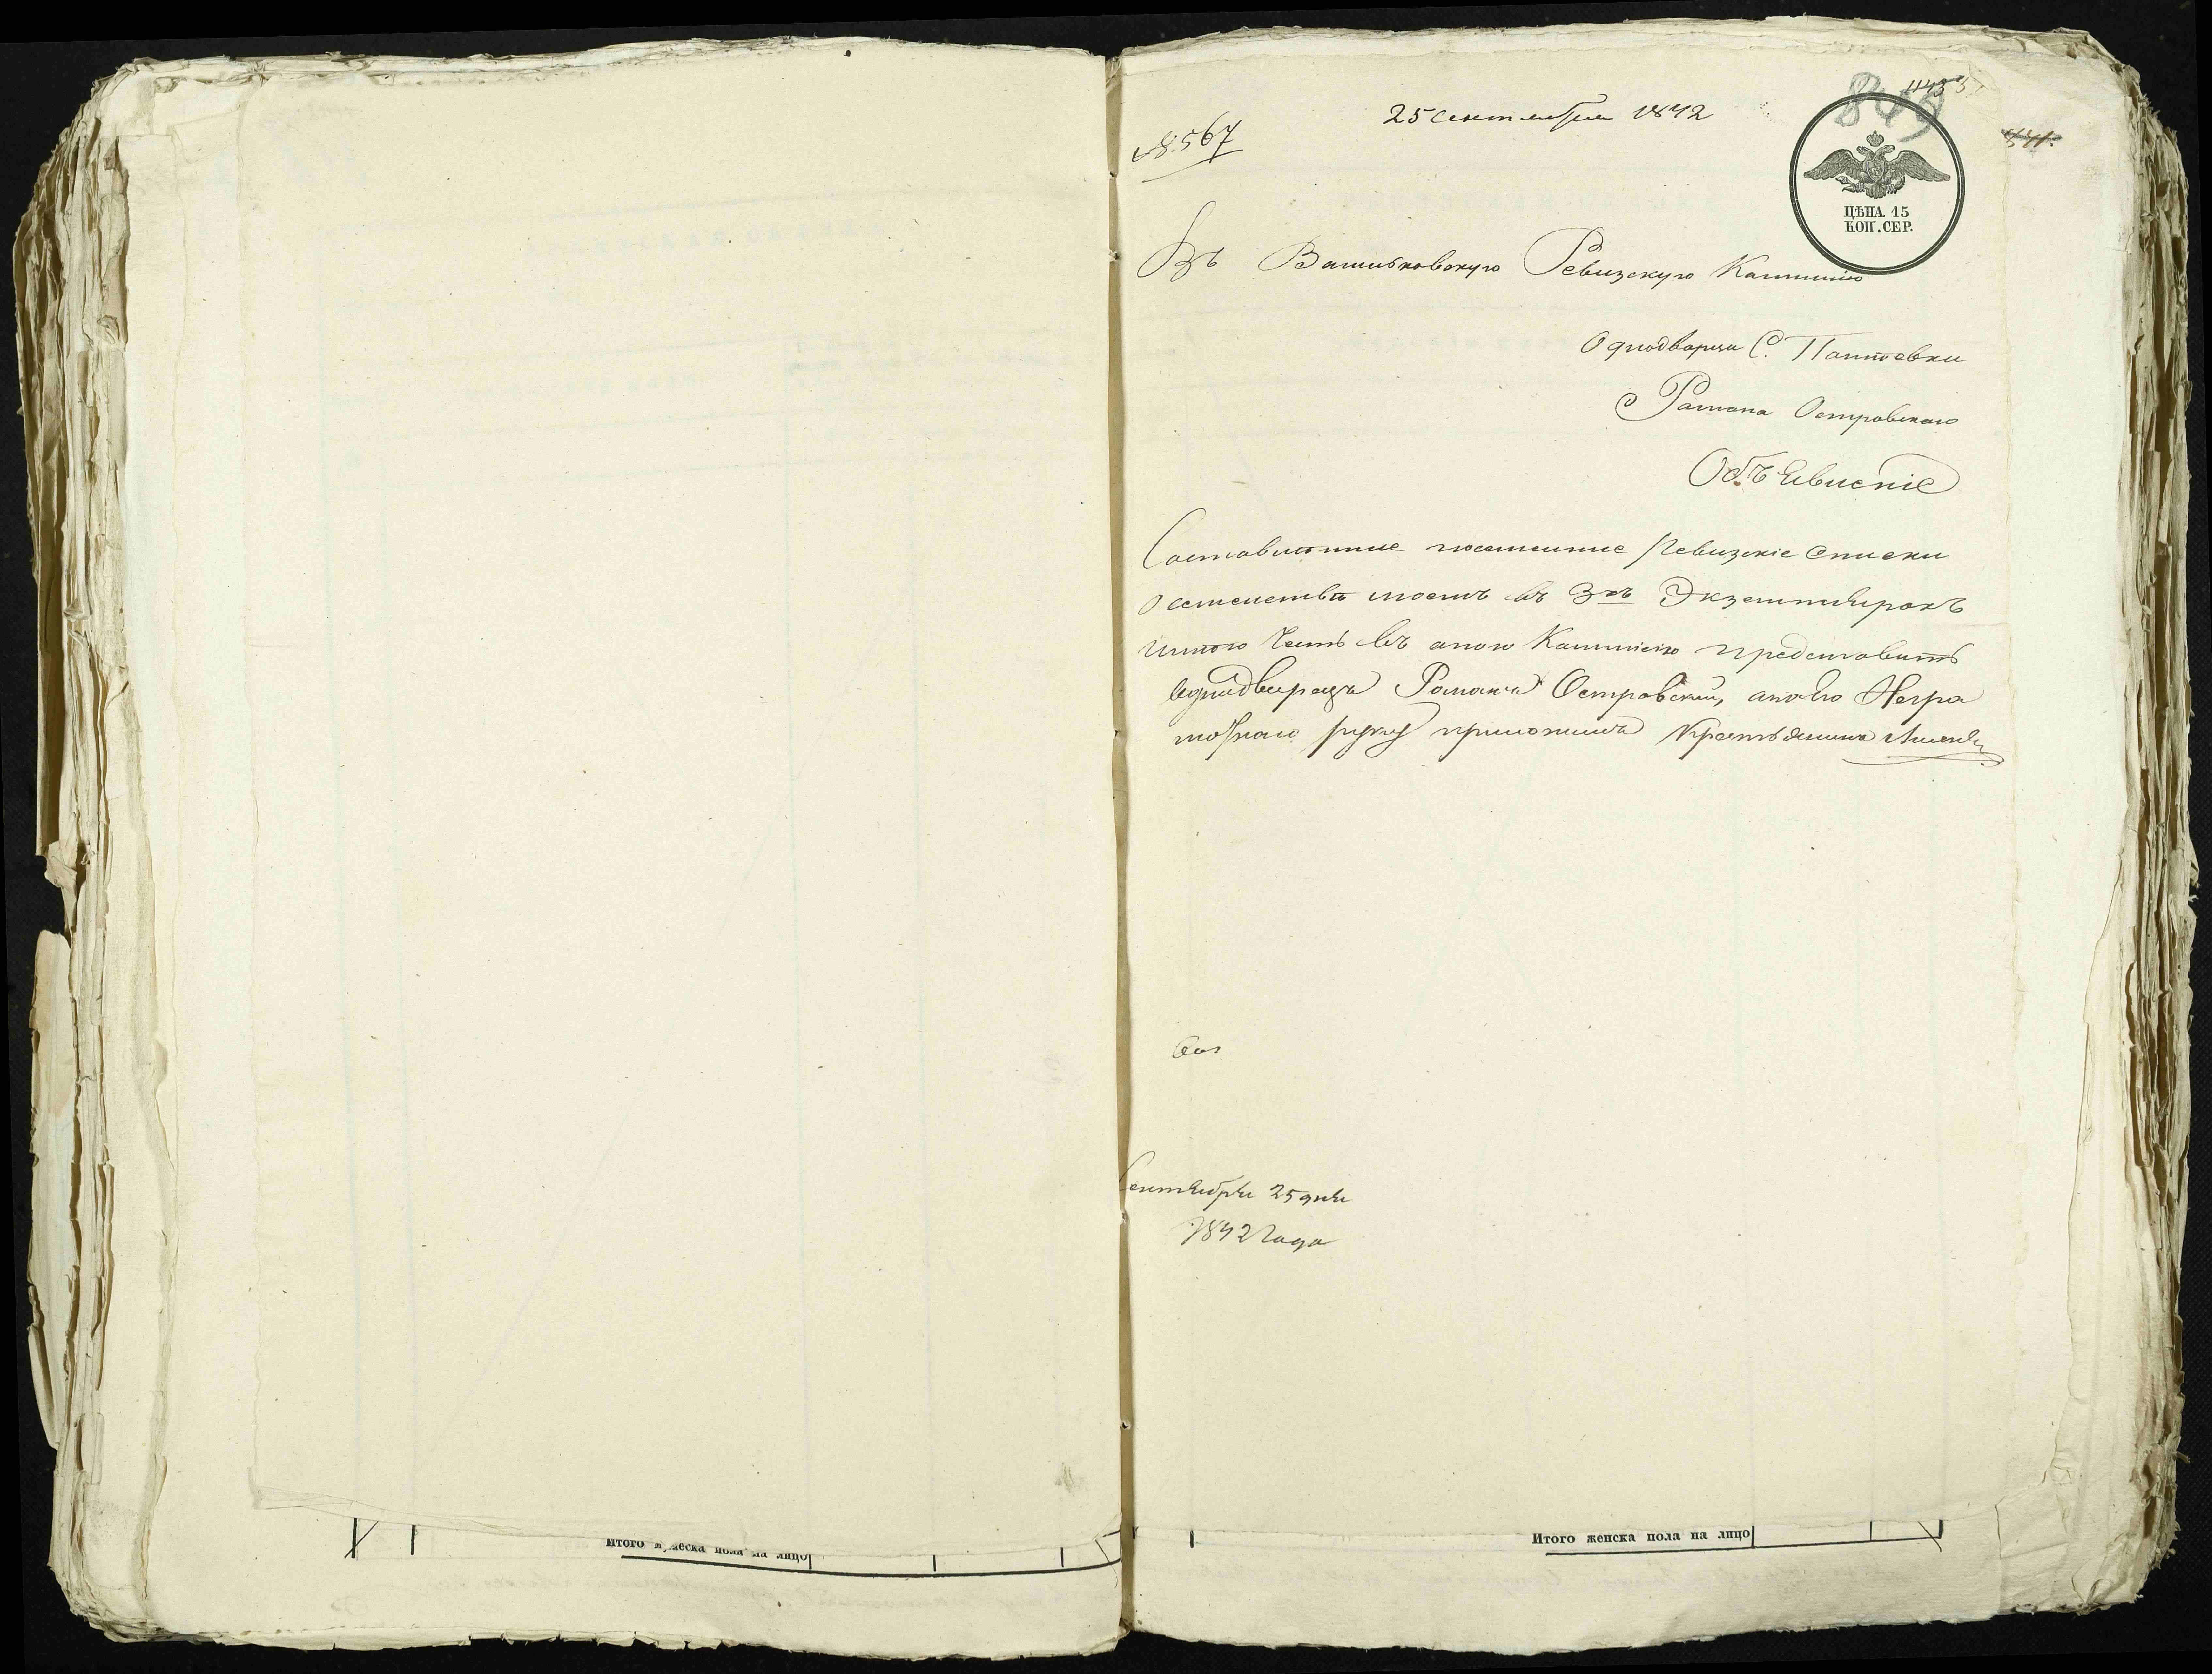 25 Сентября 1842
№ 8567
ЦѢНА 15
КОП. СЕР.
Въ Васильковскую Ревизскую Каммисію
Однодворца С. Пантоевки
Романа Островскаго
Объявленіе
Составленные посемейные Ревизскіе Списки
О семействѣ моемъ въ 3хъ Экземплярахъ
имѣю Честь въ оною Каммисію представить
Однодворецъ Романъ Островскій, а по его Негра
мотною руку приложилъ Крестьянинъ
Сентября 25 дня
1842 Года
Итого мужеска пола на лицо
Итого женска пола на лицо